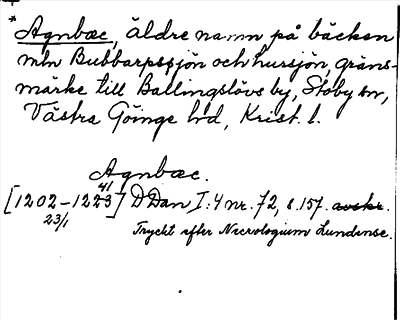 * Agnbæc, äldre namn på bäcken
mln Bubbarpssjön och hussjön, gräns-
märke till Ballingslövs by, Stoby sn,
Västra Göinge hd, Krist. l.
Agnbæc.
[1202-1223] D Dan I:4 nr. 72, s. 157. avskr.
41
23/1
Tryckt efter Necrologium Lundense.